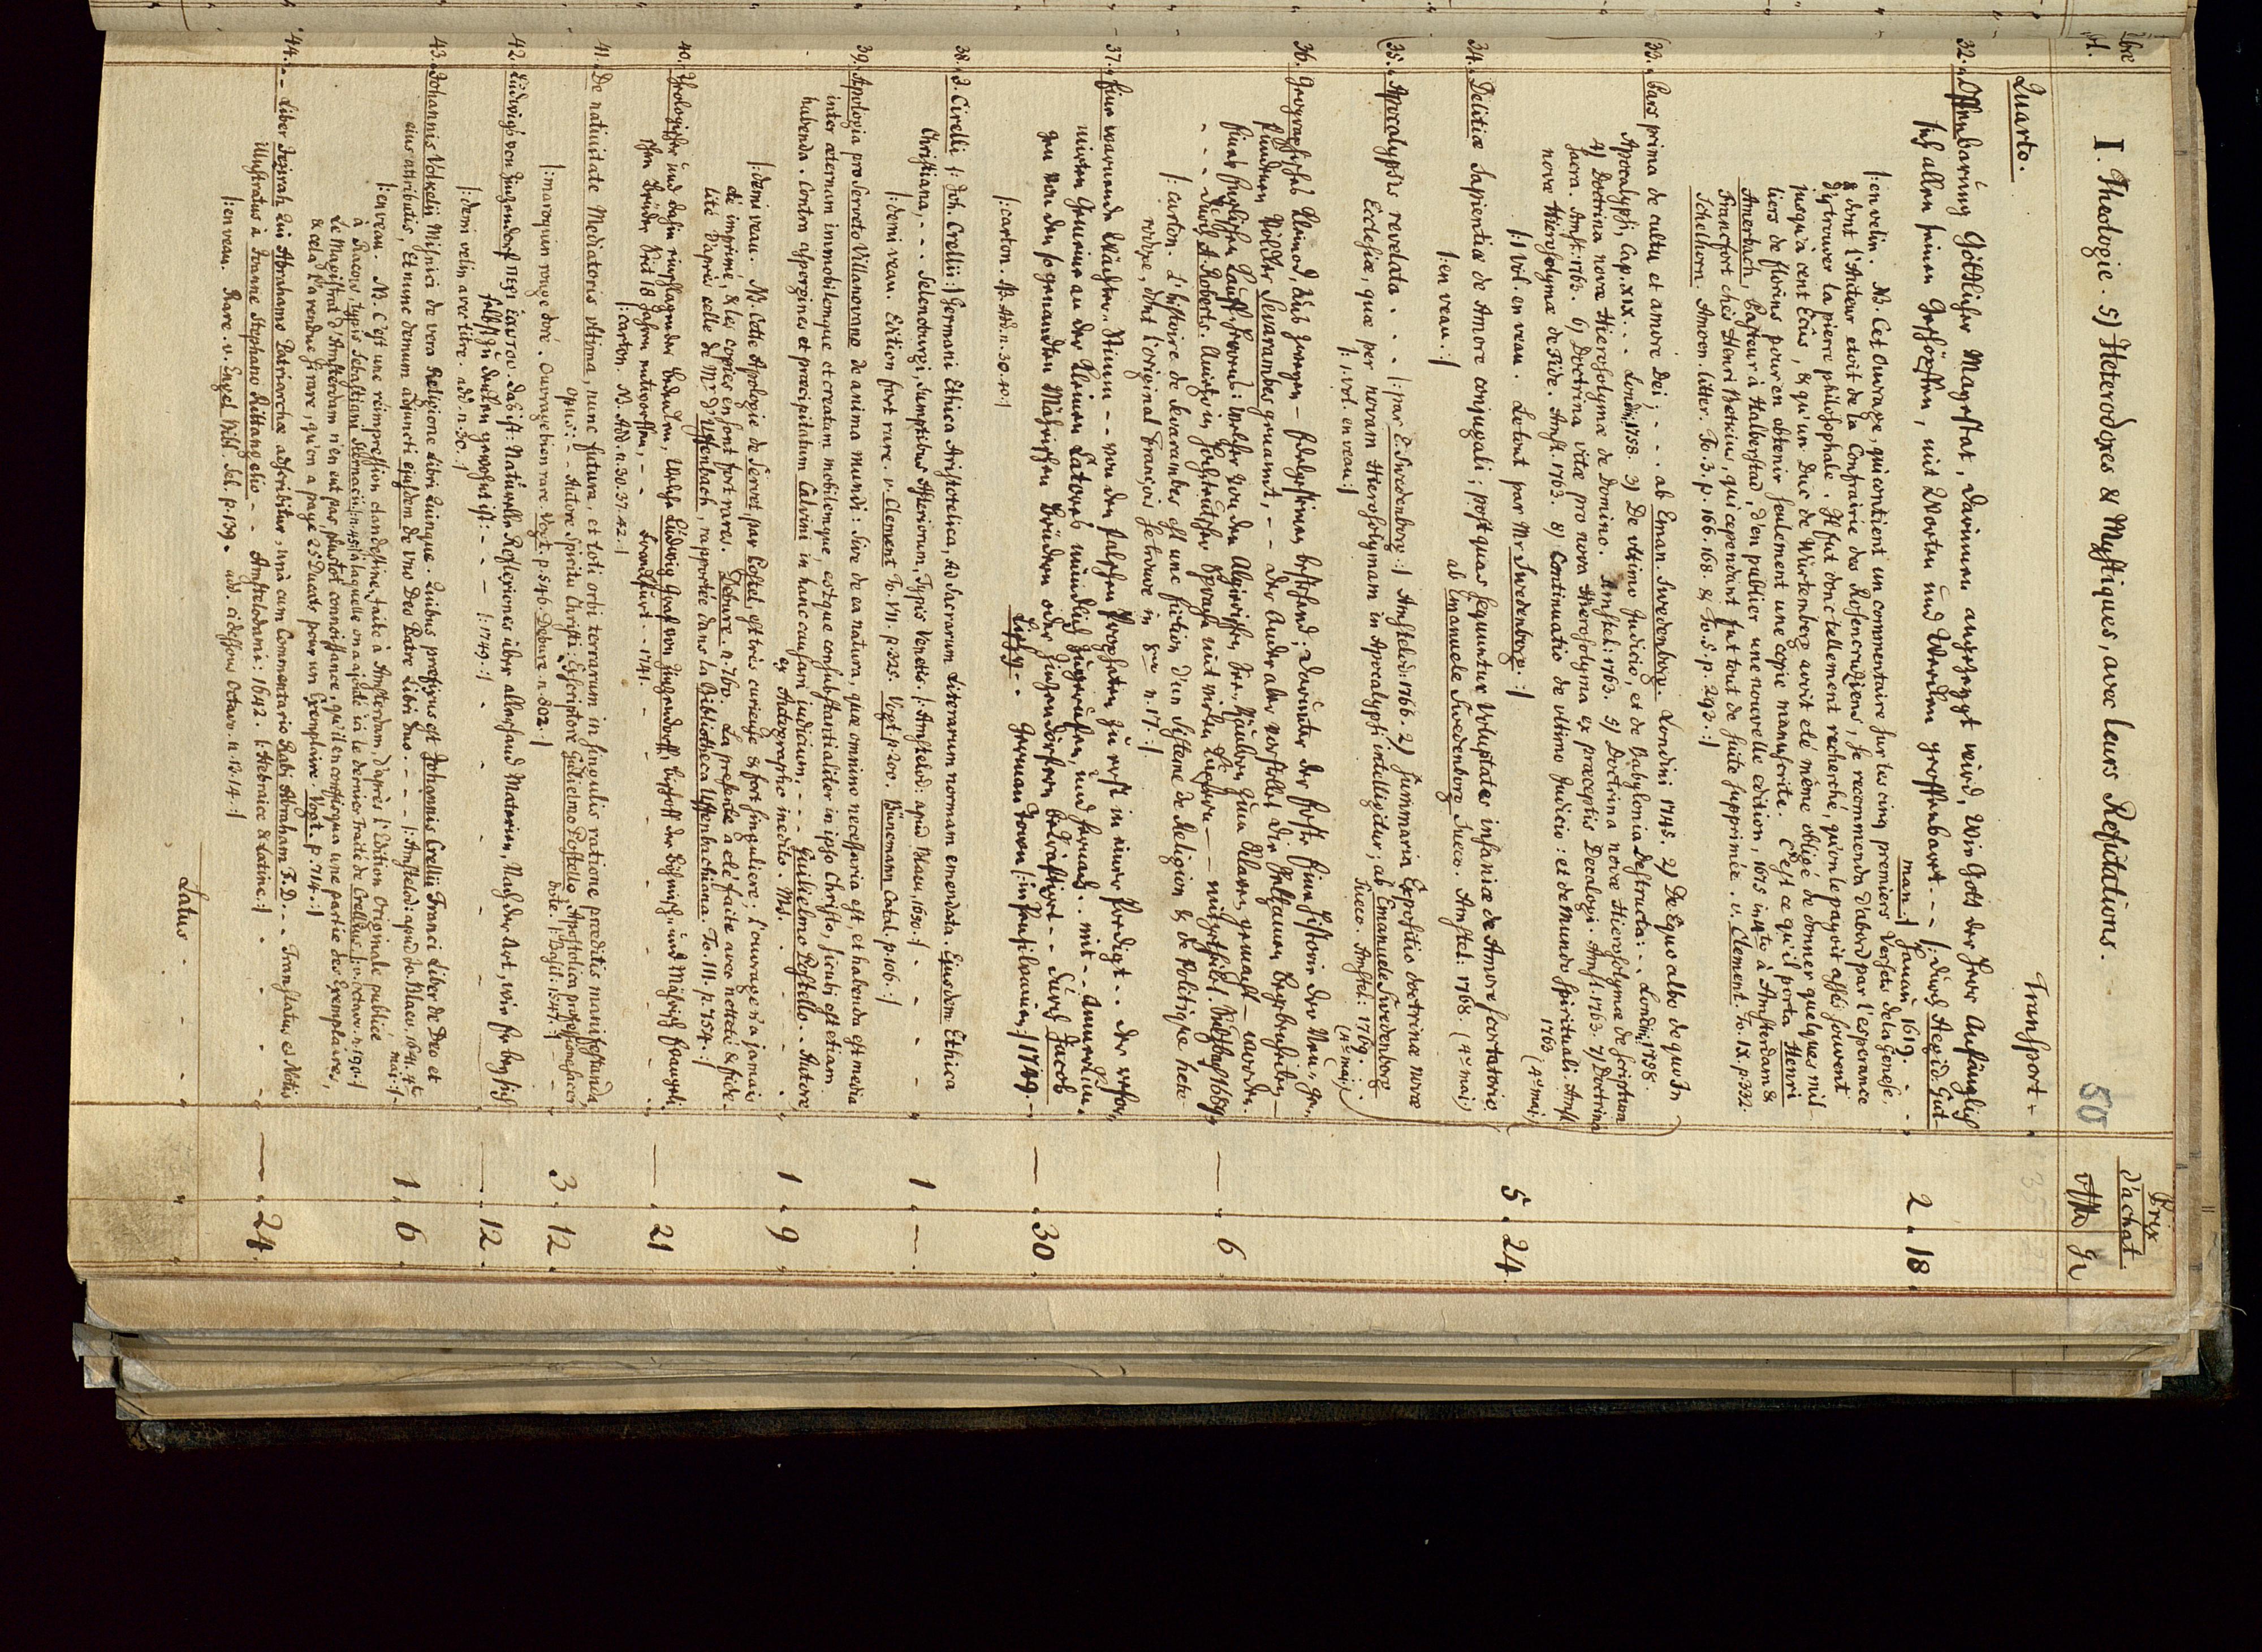 I. Theologie. 5) Heterodoxes & Mystiques, avec leurs Refutations. 50
Prix d'achat.
Quarto.
Transport
32. Offenbarung Göttlicher Mayestat, darinnen angezeigt wird, Wie Gott der Herr Anfänglich
sich allen seinen Geschöpfen, mit Worten und Wercken geoffenbaret - - /: durch Aegid. Gut-
man :/ Hanau 1619. 2 „ 18.
/: en velin. NB. Cet Ouvrage, qui contient un commentaire sur les cinq premiers Versets de la Genese,
& dont l'Auteur etoit de la Confrairie des Rosencrugiens, se recommenda d'abord par l'esperance
d'y trouver la pierre philosophale. Il fut donc tellement recherché, qu'on le payoit assés souvent
jusqu'à cent Ecus, & qu'un Duc de Würtemberg avoit eté même obligé de donner quelques mil-
liers de florins pour en obtenir seulement une copie manuscrite. C'est ce qu'il porta Henri
Amerbach, Pasteur à Halberstad, d'en publier une nouvelle edition, 1675 in 4to à Amsterdam &
Francfort chés Henri Betkius, qui cependant fut tout de suite supprimée. v. Clement. To. IX. p. 332.
Schelhorn. Amoen. litter. To. 3. p. 166. 168. & To. 5. p. 292. :/
33. Pars prima de cultu et amore Dei; - - . ab Eman. Swedenborg. Londini 1745. 2) De Equo albo de quo in
Apocalypsi, Cap. XIX. . . Londini 1758. 3) De ultimo Judicio, et de Babylonia destructa: . . Londini 1758.
4) Doctrina novæ Hierosolymæ de Domino. Amstel: 1763. 5) Doctrina novæ Hierosolymæ de scriptura
sacra. Amst: 1763. 6) Doctrina vitæ pro nova Hierosolyma ex præceptis Decalogi. Amst. 1763. 7) Doctrina
novæ Hierosolymæ de Fide. Amst. 1763. 8) Continuatio de ultimo Judicio: et de Mundo spirituali. Amst
1763. (4to maj.)
/: 1 vol. en veau. Le tout par Mr Swedenberg. :/
34. Delitiæ Sapientiæ de Amore conjugali; post quas sequuntur Voluptates insaniæ de Amore scortatorio,
ab Emanuele Swedenborg Sueco. Amstel: 1768. (4to maj.) 5. 24.
/: en veau :/
35. Apocalypsis revelata . . . /: par E. Swedenborg :/ Amstelod: 1766. 2) Summaria Expositio doctrinæ novæ
Ecclesiæ, quæ per novam Hierosolymam in Apocalypsi intelligitur; ab Emanuele Swedenborg
Sueco. Amstel: 1769. (4to maj.)
/: 1. vol. en veau :/
36. Geographisches Kleinod, aus zweyen - Edelgesteinen bestehend; darunter der Erste Eine Historie der Neu-ge-
fundenen Völcker Sevarambes genannt, - - Der Andere aber vorstellet die
„ 6
/: carton. L'histoire de Sevarambes est une fiction d'un sisteme de Religion & de Politique hete-
rodoxe, dont l'original François se trouve in 8vo n. 17. :/
37. Eine warnende Wächter-Stimme - - von den falschen Propheten zu erst in einer Predigt . . der ersten
- - durch Jacob
Lischy. - Germantown /: in Pensilvanien :/ 1749. — „ 30.
/: carton. NB. Add. n. 30. 40. :/
38. J. Cirelli /: Joh. Crellii :/ Germani Ethica Aristotelica, Ad sacrarum Literarum normam emendata. Ejusdem Ethica
Christiana, - - Selenoburgi, Sumptibus Asteriorum, Typis Venetis. /: Amstelod: apud Blaeu, 1650. :/ 1 „ —
/: demi veau. Edition fort rare. v. Clement To. VII. p. 325. Vogt. p. 200. Bünemann Catal. p. 106. :/
39. Apologia pro Serveto Villanovano de anima mundi: sive de ea natura, quæ omnino necessaria est, et habenda est media
inter æternam immobilemque et creatam mobilemque, estque consubstantialiter in ipso Christo, sicubi est etiam
habenda. Contra aspergines et præcipitatum Calvini in hanc causam iudicium, - - Guilielmo Postello. . Autore
ex Autographo inedito. Ms. 1 „ 9
/: demi veau. NB. Cette Apologie de Servet, par Postel, est très curieuse & fort singuliere; l'ouvrage n'a jamais
été imprimé, & les copies en sont fort rares. Debure. n. 760. La presente a eté faite avec netteté & fide-
lité d'après celle de Mr d'Uffenbach, rapportée dans la Bibliotheca Uffenbachiana. To. III. p. 754. :/
40. Theologische und dahin einschlagende Bedencken, welche Ludwig Graf von Zinzendorff, Bischoff der Böhmisch- und Mährisch Evangeli-
schen Brüder Seit 18 Jahren entworffen, - - Franckfurt. . 1741. — „ 21
/: carton. NB. Add. n. 30. 37. 42. :/
41. De nativitate Mediatoris ultima, nunc futura, et toti orbi terrarum in singulis ratione præditis manifestanda,
opus: - - Autore Spiritu Christi. Exscriptore Gulielmo Postello, Apostolica professione sacer-
dote. /: Basil: 1547. :/ 3 „ 12.
/: maroquin rouge doré. Ouvrage bien rare. Vogt. p. 546. Debure. n. 802. :/
42. Ludwigs von Zinzendorf περι εαυτου. das ist: Naturelle Reflexiones über allerhand Materien, Nach der Art, wie Er bey sich
selbst zu dencken gewohnt ist: - - - /: 1749. :/ — „ 12.
/: demi velin avec titre. add. n. 30. :/
43. Johannis Volkelii Misnici de vera Religione Libri Quinque: Quibus præfixus est Johannis Crellii Franci Liber de Deo et
eius attributis, Et nunc demum adjuncti ejusdem de Uno Deo Patre Libri duo. - - - /: Amstelod: apud Jo. Blaeu, 1641. 4to
maj: :/ 1. 6.
/: en veau. NB. C'est une réimpression clandestine, faite à Amsterdam, d'après l'Edition originale publiée
à Racow, typis Sebastiani Sternacii /: n. 45 :/ à laquelle on a ajouté ici le dernier Traité de Crellius /: v. Octavo. n. 190. :/
Le Magistrat d'Amsterdam n'en eut pas plustot connoissance, qu'il en confisqua une partie des Exemplaires,
& cela l'a rendue si rare, qu'on a payé 25 Ducats pour un Exemplaire. Vogt. p. 714. :/
44. - - Liber Jezirah Qui Abrahamo Patriarchæ adscribitur, unà cum Commentario Rabi Abraham F. D. - - Translatus et Notis
illustratus à Joanne Stephano Rittangelio - - Amstelodami: 1642. /: Hebraice & Latine :/ — „ 24.
/: en veau. Rare. v. Engel Bibl. Sel. p. 139. add. ci dessous Octavo. n. 13. 14. :/
Latus